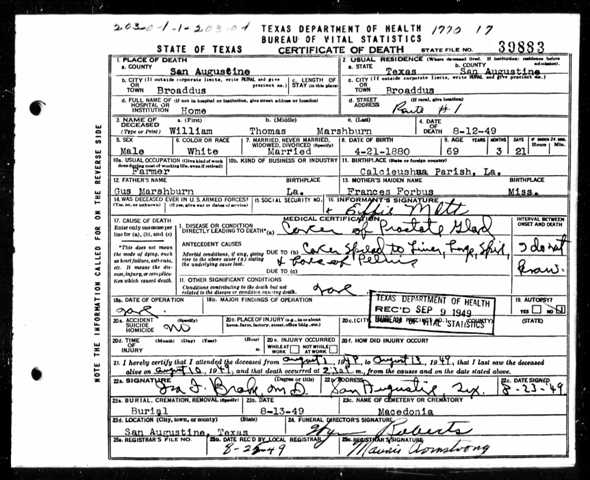 TEXAS DEPARTMENT OF HEALTH
BUREAU OF VITAL STATISTICS
STATE OF TEXAS CERTIFICATE OF DEATH STATE FILE NO. 39883
1. PLACE OF DEATH 2. USUAL RESIDENCE (Where deceased lived. If institution: residence before admission)
a. COUNTY San Augustine a. STATE Texas b. COUNTY San Augustine
b. CITY (If outside corporate limits, write RURAL and give precinct no.) OR TOWN Broaddus c. LENGTH OF STAY (in this place) c. CITY (If outside corporate limits, write RURAL and give precinct no.) OR TOWN Broaddus
d. FULL NAME OF (If not in hospital or institution, give street address or location) HOSPITAL OR INSTITUTION Home d. STREET ADDRESS (If rural, give location) Route #1
3. NAME OF DECEASED (Type or Print) a. (First) William b. (Middle) Thomas c. (Last) Marshburn 4. DATE OF DEATH 8-12-49
5. SEX Male 6. COLOR OR RACE White 7. MARRIED, NEVER MARRIED, WIDOWED, DIVORCED (Specify) Married 8. DATE OF BIRTH 4-21-1880 9. AGE 69 3 21
10a. USUAL OCCUPATION (Give kind of work done during most of working life, even if retired) Farmer 10b. KIND OF BUSINESS OR INDUSTRY 11. BIRTHPLACE Calcieushua Parish, La.
12. FATHER'S NAME BIRTHPLACE 13. MOTHER'S MAIDEN NAME BIRTHPLACE
Gus Marshburn La. Frances Forbus Miss.
14. WAS DECEASED EVER IN U.S. ARMED FORCES? (Yes, no, or unknown) (If yes, give war or dates of service) 15. SOCIAL SECURITY NO. 16. INFORMANT'S SIGNATURE
Effie Mott
17. CAUSE OF DEATH MEDICAL CERTIFICATION INTERVAL BETWEEN ONSET AND DEATH
Enter only one cause per line for (a), (b), and (c)
I. DISEASE OR CONDITION DIRECTLY LEADING TO DEATH* (a) Cancer of Prostate Gland
*This does not mean the mode of dying, such as heart failure, asthenia, etc. It means the disease, injury, or complication which caused death.
ANTECEDENT CAUSES
Morbid conditions, if any, giving rise to the above cause (a) stating the underlying cause last.
DUE TO (b) Cancer Spread to Liver, Lungs,
DUE TO (c) & Bone of Pelvis
I do not know
II. OTHER SIGNIFICANT CONDITIONS
Conditions contributing to the death but not related to the disease or condition causing death.
18a. DATE OF OPERATION 18b. MAJOR FINDINGS OF OPERATION 19. AUTOPSY? YES NO
TEXAS DEPARTMENT OF HEALTH
REC'D SEP 9 1949
BUREAU OF VITAL STATISTICS
20a. ACCIDENT SUICIDE HOMICIDE no 20b. PLACE OF INJURY (e.g., in or about home, farm, factory, street, office bldg., etc.)
20d. TIME OF INJURY (Month) (Day) (Year) (Hour) 20e. INJURY OCCURRED WHILE AT WORK NOT WHILE AT WORK 20f. HOW DID INJURY OCCUR?
21. I hereby certify that I attended the deceased from August 1, 1949, to August 13, 1949, that I last saw the deceased
alive on August 10, 1949, and that death occurred at m., from the causes and on the date stated above.
22a. SIGNATURE (Degree or title) M.D. 22b. ADDRESS San Augustine, Tex. 22c. DATE SIGNED 8-23-49
23a. BURIAL, CREMATION, REMOVAL (Specify) Burial 23b. DATE 8-13-49 23c. NAME OF CEMETERY OR CREMATORY Macedonia
23d. LOCATION (City, town, or county) (State) San Augustine, Texas 24. FUNERAL DIRECTOR'S SIGNATURE Roberts
25a. REGISTRAR'S FILE NO. 25b. DATE REC'D BY LOCAL REGISTRAR 25c. REGISTRAR'S SIGNATURE Armstrong
NOTE THE INFORMATION CALLED FOR ON THE REVERSE SIDE